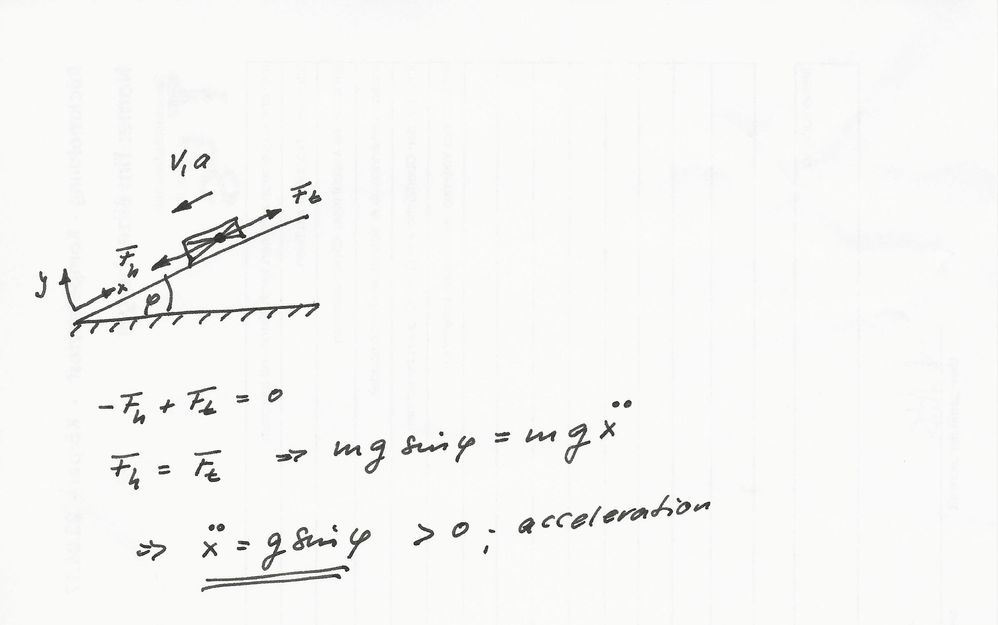 v, a
F_t
F_h
y
x
φ
-F_h + F_t = 0
F_h = F_t ⇒ mg sin φ = mg ẍ
⇒ ẍ = g sin φ > 0 ; acceleration